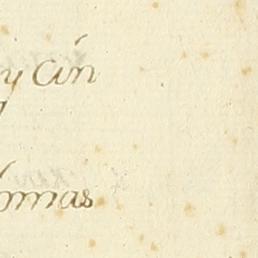 y Cin
omas